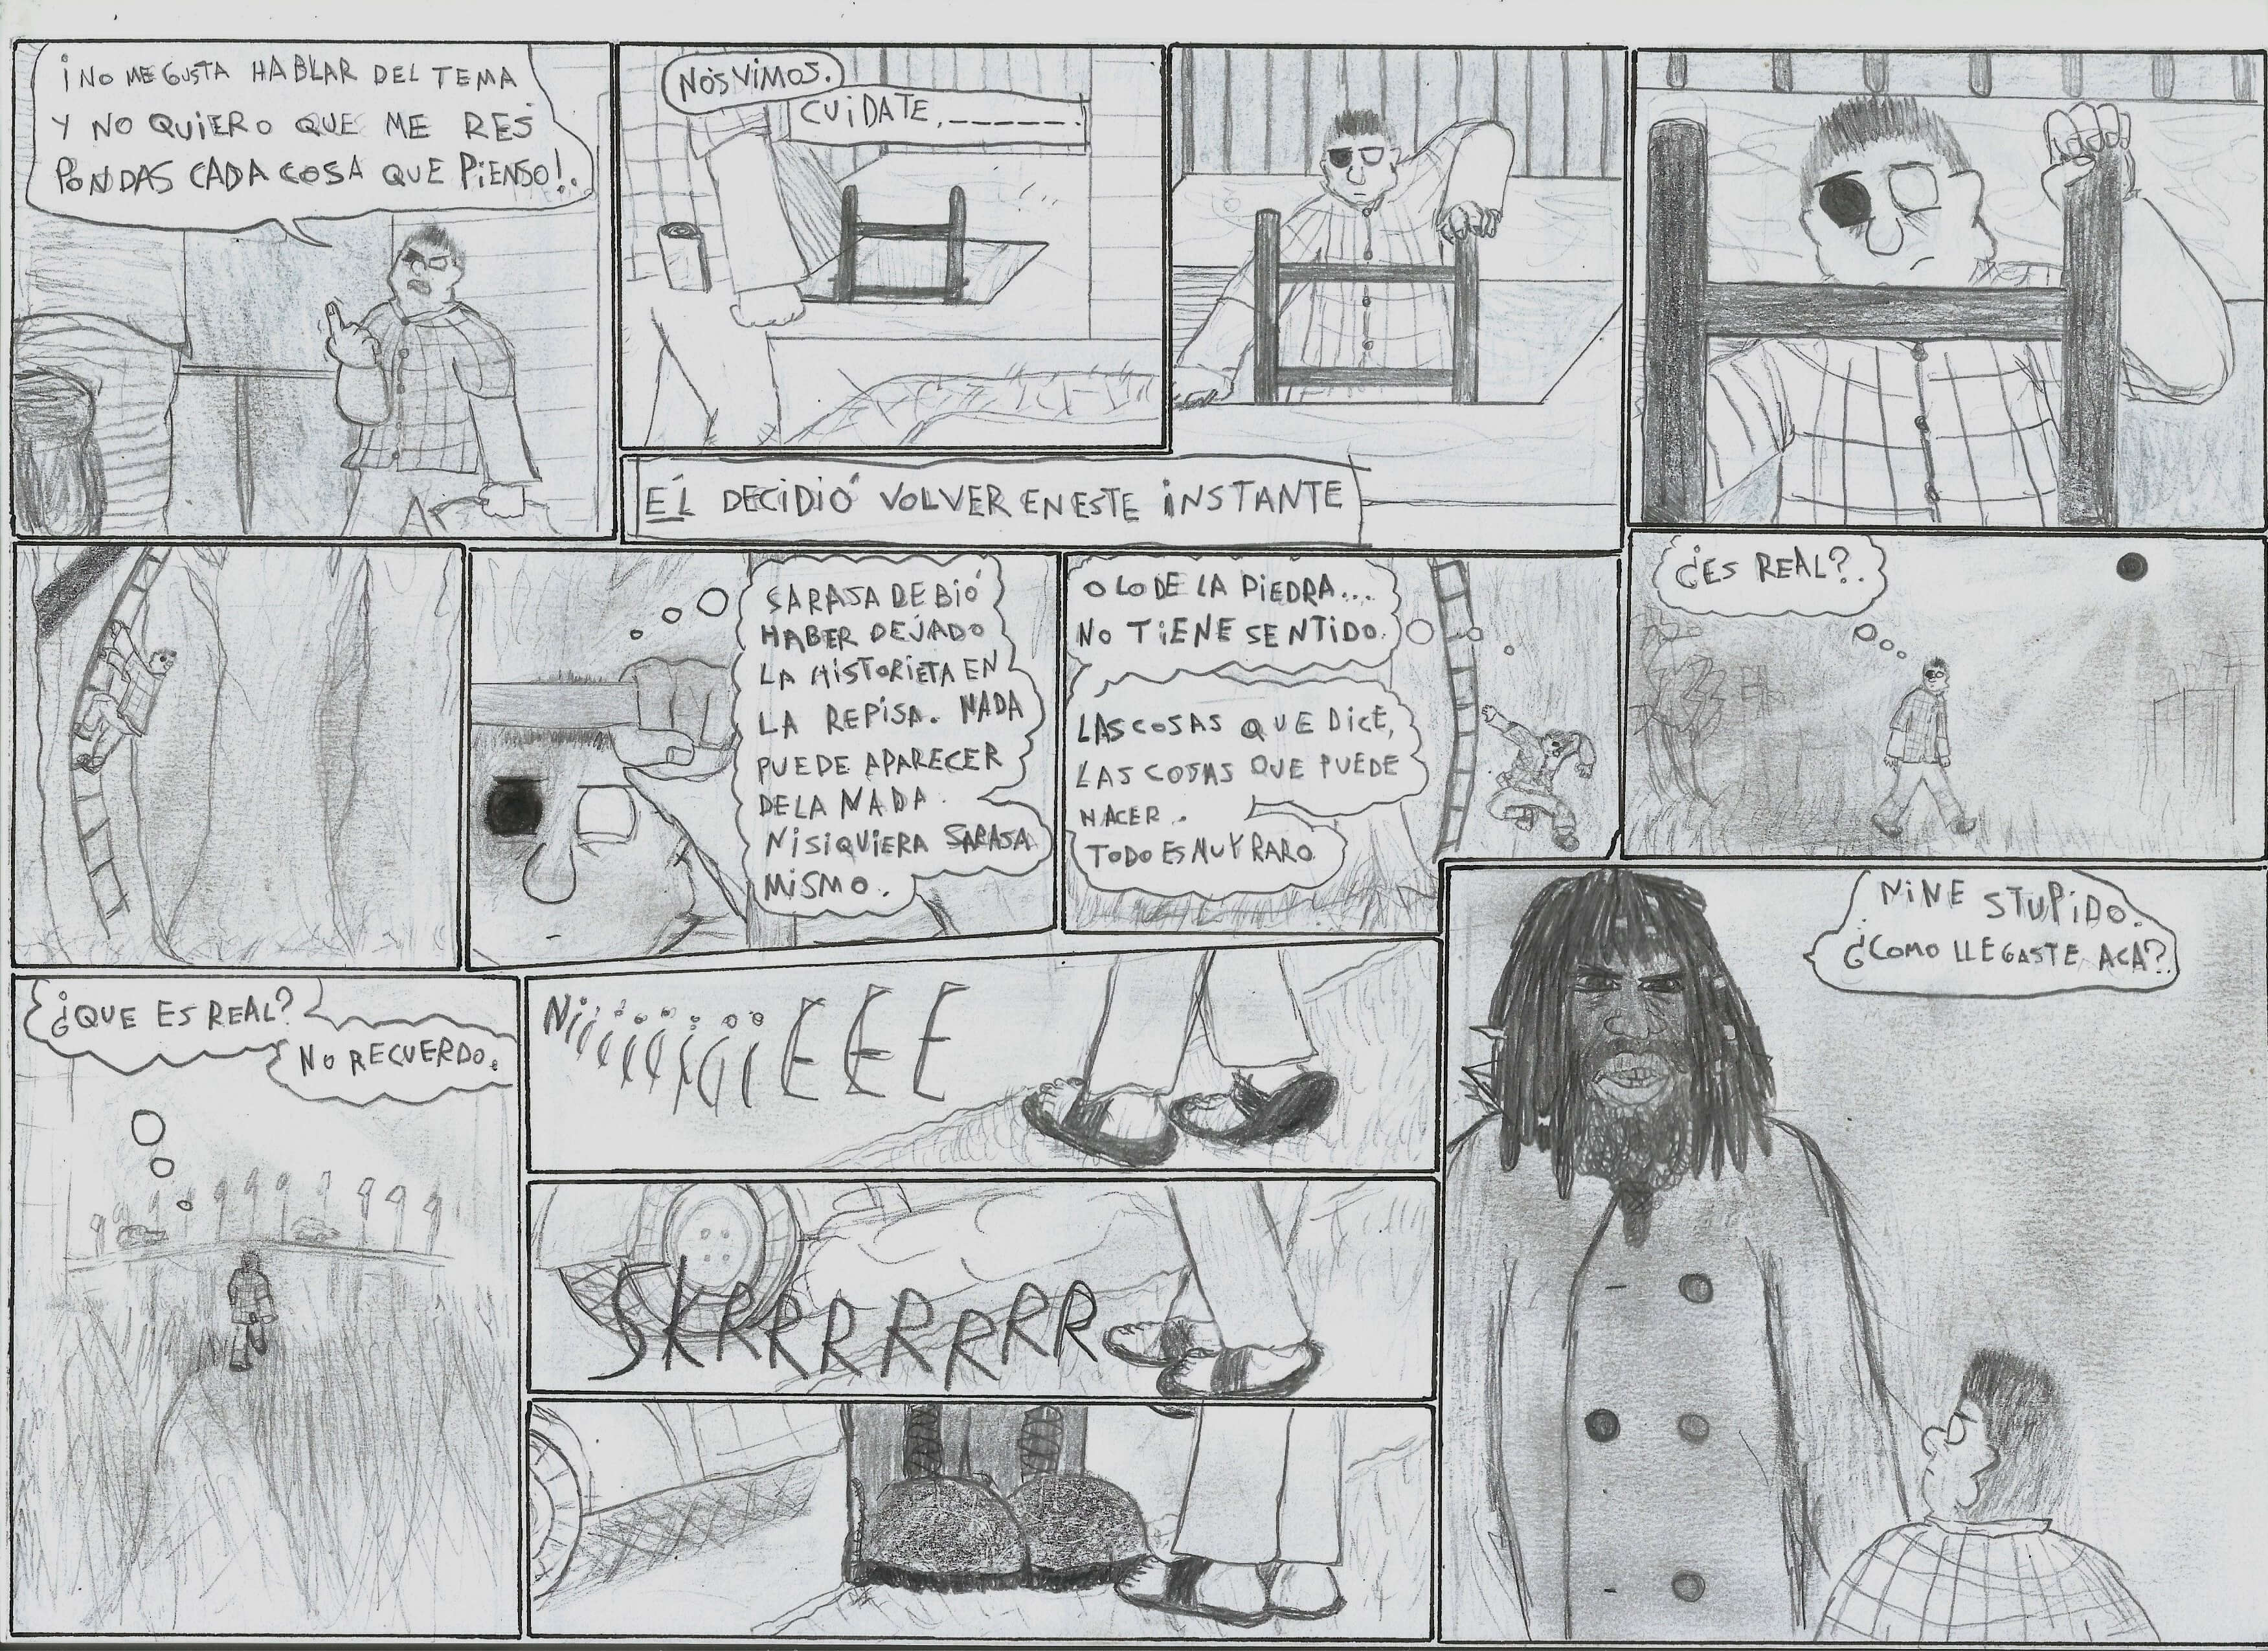 ¡NO ME GUSTA HABLAR DEL TEMA
Y NO QUIERO QUE ME RES
PONDAS CADA COSA QUE PIENSO!.
NOS VIMOS.
CUIDATE,______!
ÉL DECIDIÓ VOLVER EN ESTE INSTANTE
SARASA DEBIÓ
HABER DEJADO
LA HISTORIETA EN
LA REPISA. NADA
PUEDE APARECER
DE LA NADA.
NI SIQUIERA SARASA
MISMO.
O LO DE LA PIEDRA...
NO TIENE SENTIDO.
LAS COSAS QUE DICE,
LAS COSAS QUE PUEDE
HACER.
TODO ES MUY RARO
¿ES REAL?.
¿QUE ES REAL?
NO RECUERDO.
NiiiiiiiiEEE
SKRRRRRRRR
NINE STUPIDO.
¿COMO LLEGASTE ACA?.